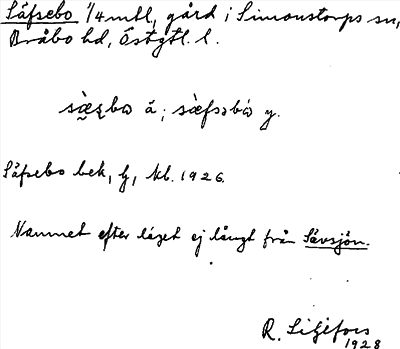 Säfsebo 1/4 mtl, gård i Simonstorps sn,
Bråbo hd, Östgtl. l.
sæ̀ʂbω ä; sæ̀fsɔbὼ y.
Säfsebo bek, G, kb. 1926.
Namnet efter läget ej långt från Sävsjön.
R. Liljefors
1928